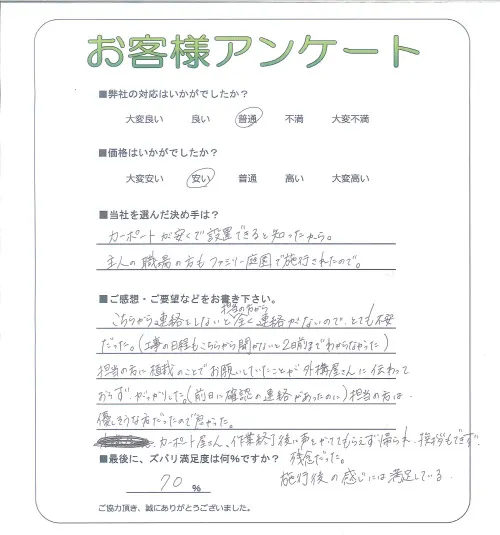 お客様アンケート
■弊社の対応はいかがでしたか?
大変良い 良い 普通 不満 大変不満
■価格はいかがでしたか?
大変安い 安い 普通 高い 大変高い
■当社を選んだ決め手は?
カーポートが安くで設置できると知ったから。
主人の職場の方もファミリー庭園で施行されたので。
■ご感想・ご要望などをお書き下さい。
担当の方から
こちらから連絡をしないと全く連絡がないので、とても不安
だった。(工事の日程もこちらから聞かないと2日前までわからなかった)
担当の方に植栽のことでお願いしていたことが外構屋さんに伝わって
おらず、がっかりした。(前日に確認の連絡があったのに)担当の方は、
優しそうな方だったので良かった。
カーポート屋さん、作業終了後い声をかけてもらえず帰られ、挨拶もできず、
■最後に、ズバリ満足度は何%ですか? 残念だった。
70 % 施行後の感じには満足している。
ご協力頂き、誠にありがとうございました。